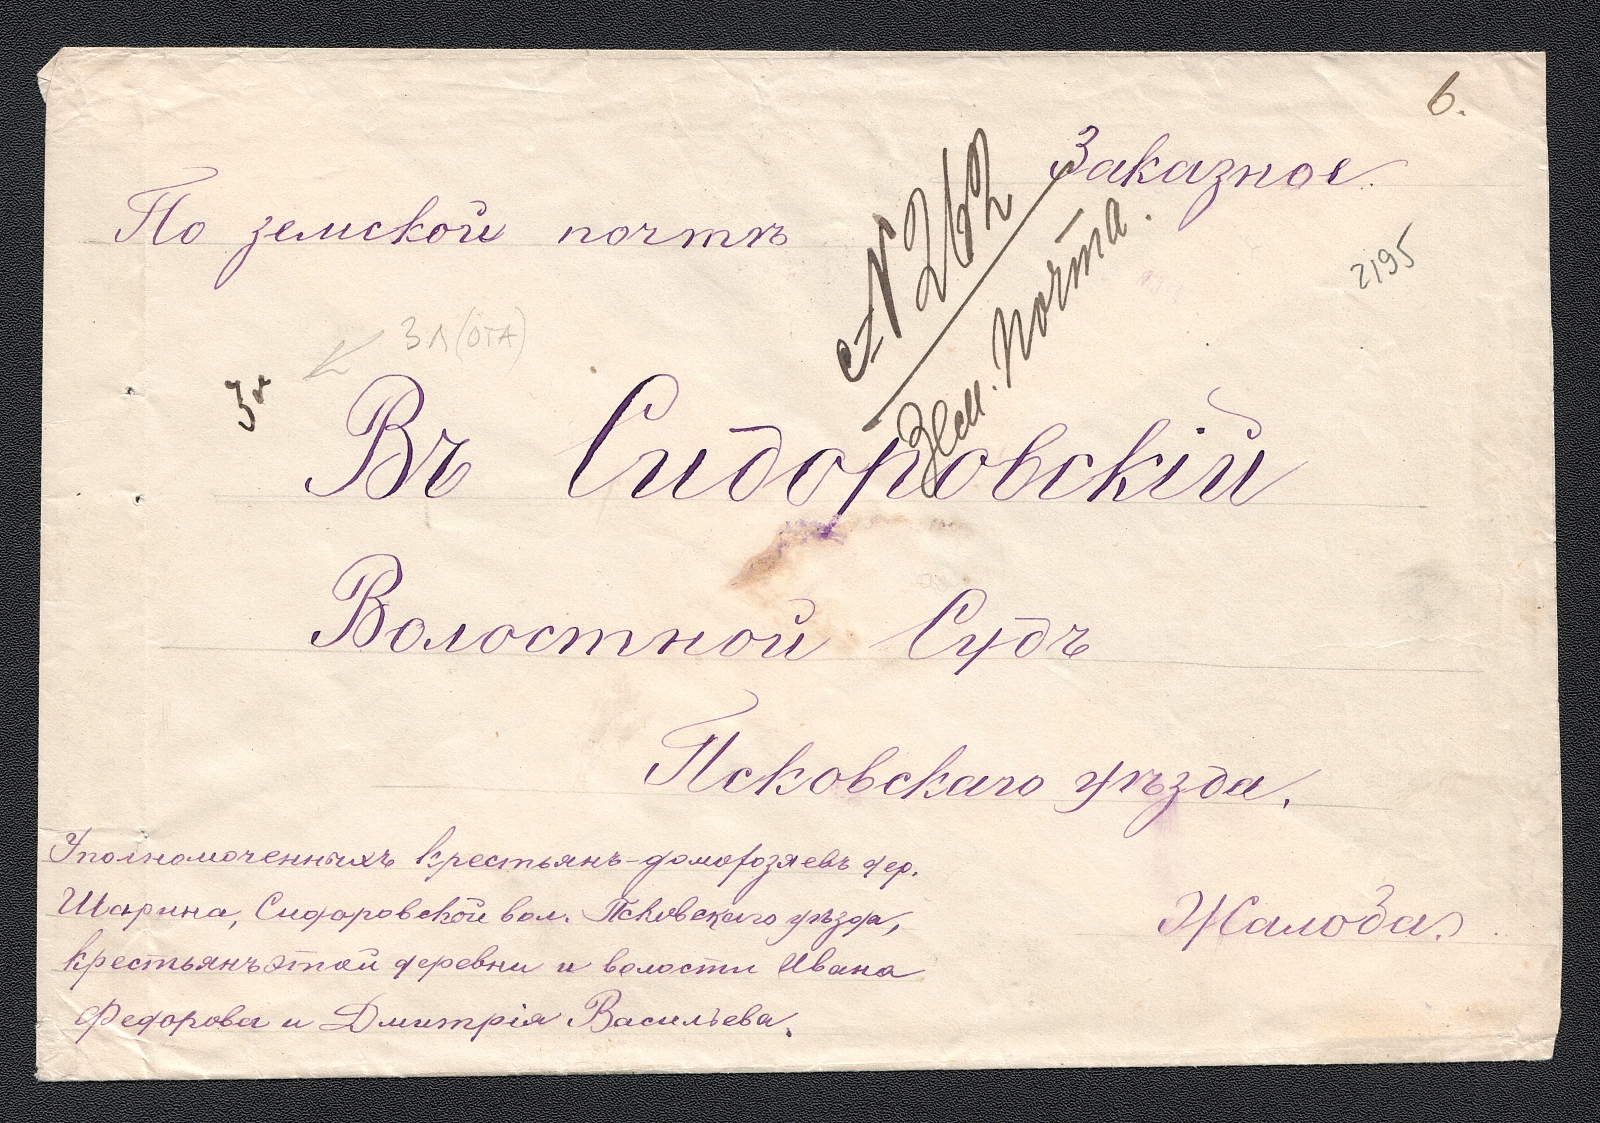 6.
Заказное.
По земской почтѣ
№ 262
Зем. Почта.
2195
3 л (ОТА)
Въ Сидоровскій
Волостной Судъ
Псковскаго уѣзда.
Уполномоченныхъ крестьянъ-домохозяевъ дер.
Шарина, Сидоровской вол. Псковскаго уѣзда,
крестьянъ этой деревни и волости Ивана
Федорова и Дмитрія Васильева.
Жалоба.